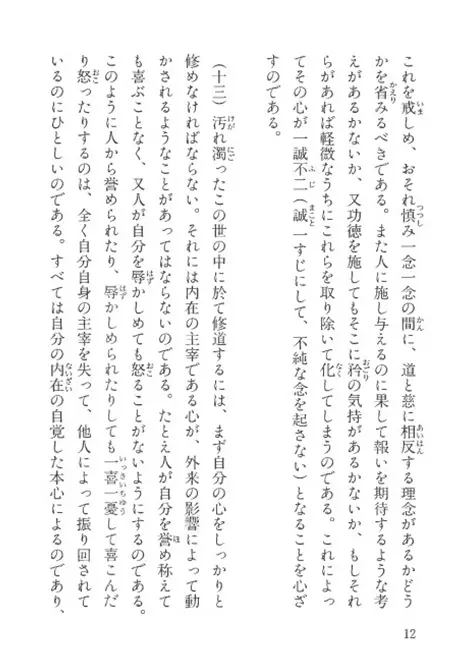 これを戒しめ、おそれ慎み一念一念の間に、道と慈に相反する理念があるかどう
かを省みるべきである。また人に施し与えるのに果して報いを期待するような考
えがあるかないか、又功徳を施してもそこに矜の気持があるかないか、もしそれ
らがあれば軽微なうちにこれらを取り除いて化してしまうのである。これによっ
てその心が一誠不二(誠一すじにして、不純な念を起さない)となることを心ざ
すのである。
(十三)汚れ濁ったこの世の中に於て修道するには、まず自分の心をしっかりと
修めなければならない。それには内在の主宰である心が、外来の影響によって動
かされるようなことがあってはならないのである。たとえ人が自分を誉め称えて
も喜ぶことなく、又人が自分を辱かしめても怒ることがないようにするのである。
このように人から誉められたり、辱かしめられたりしても一喜一憂して喜こんだ
り怒ったりするのは、全く自分自身の主宰を失って、他人によって振り回されて
いるのにひとしいのである。すべては自分の内在の自覚した本心によるのであり、
12